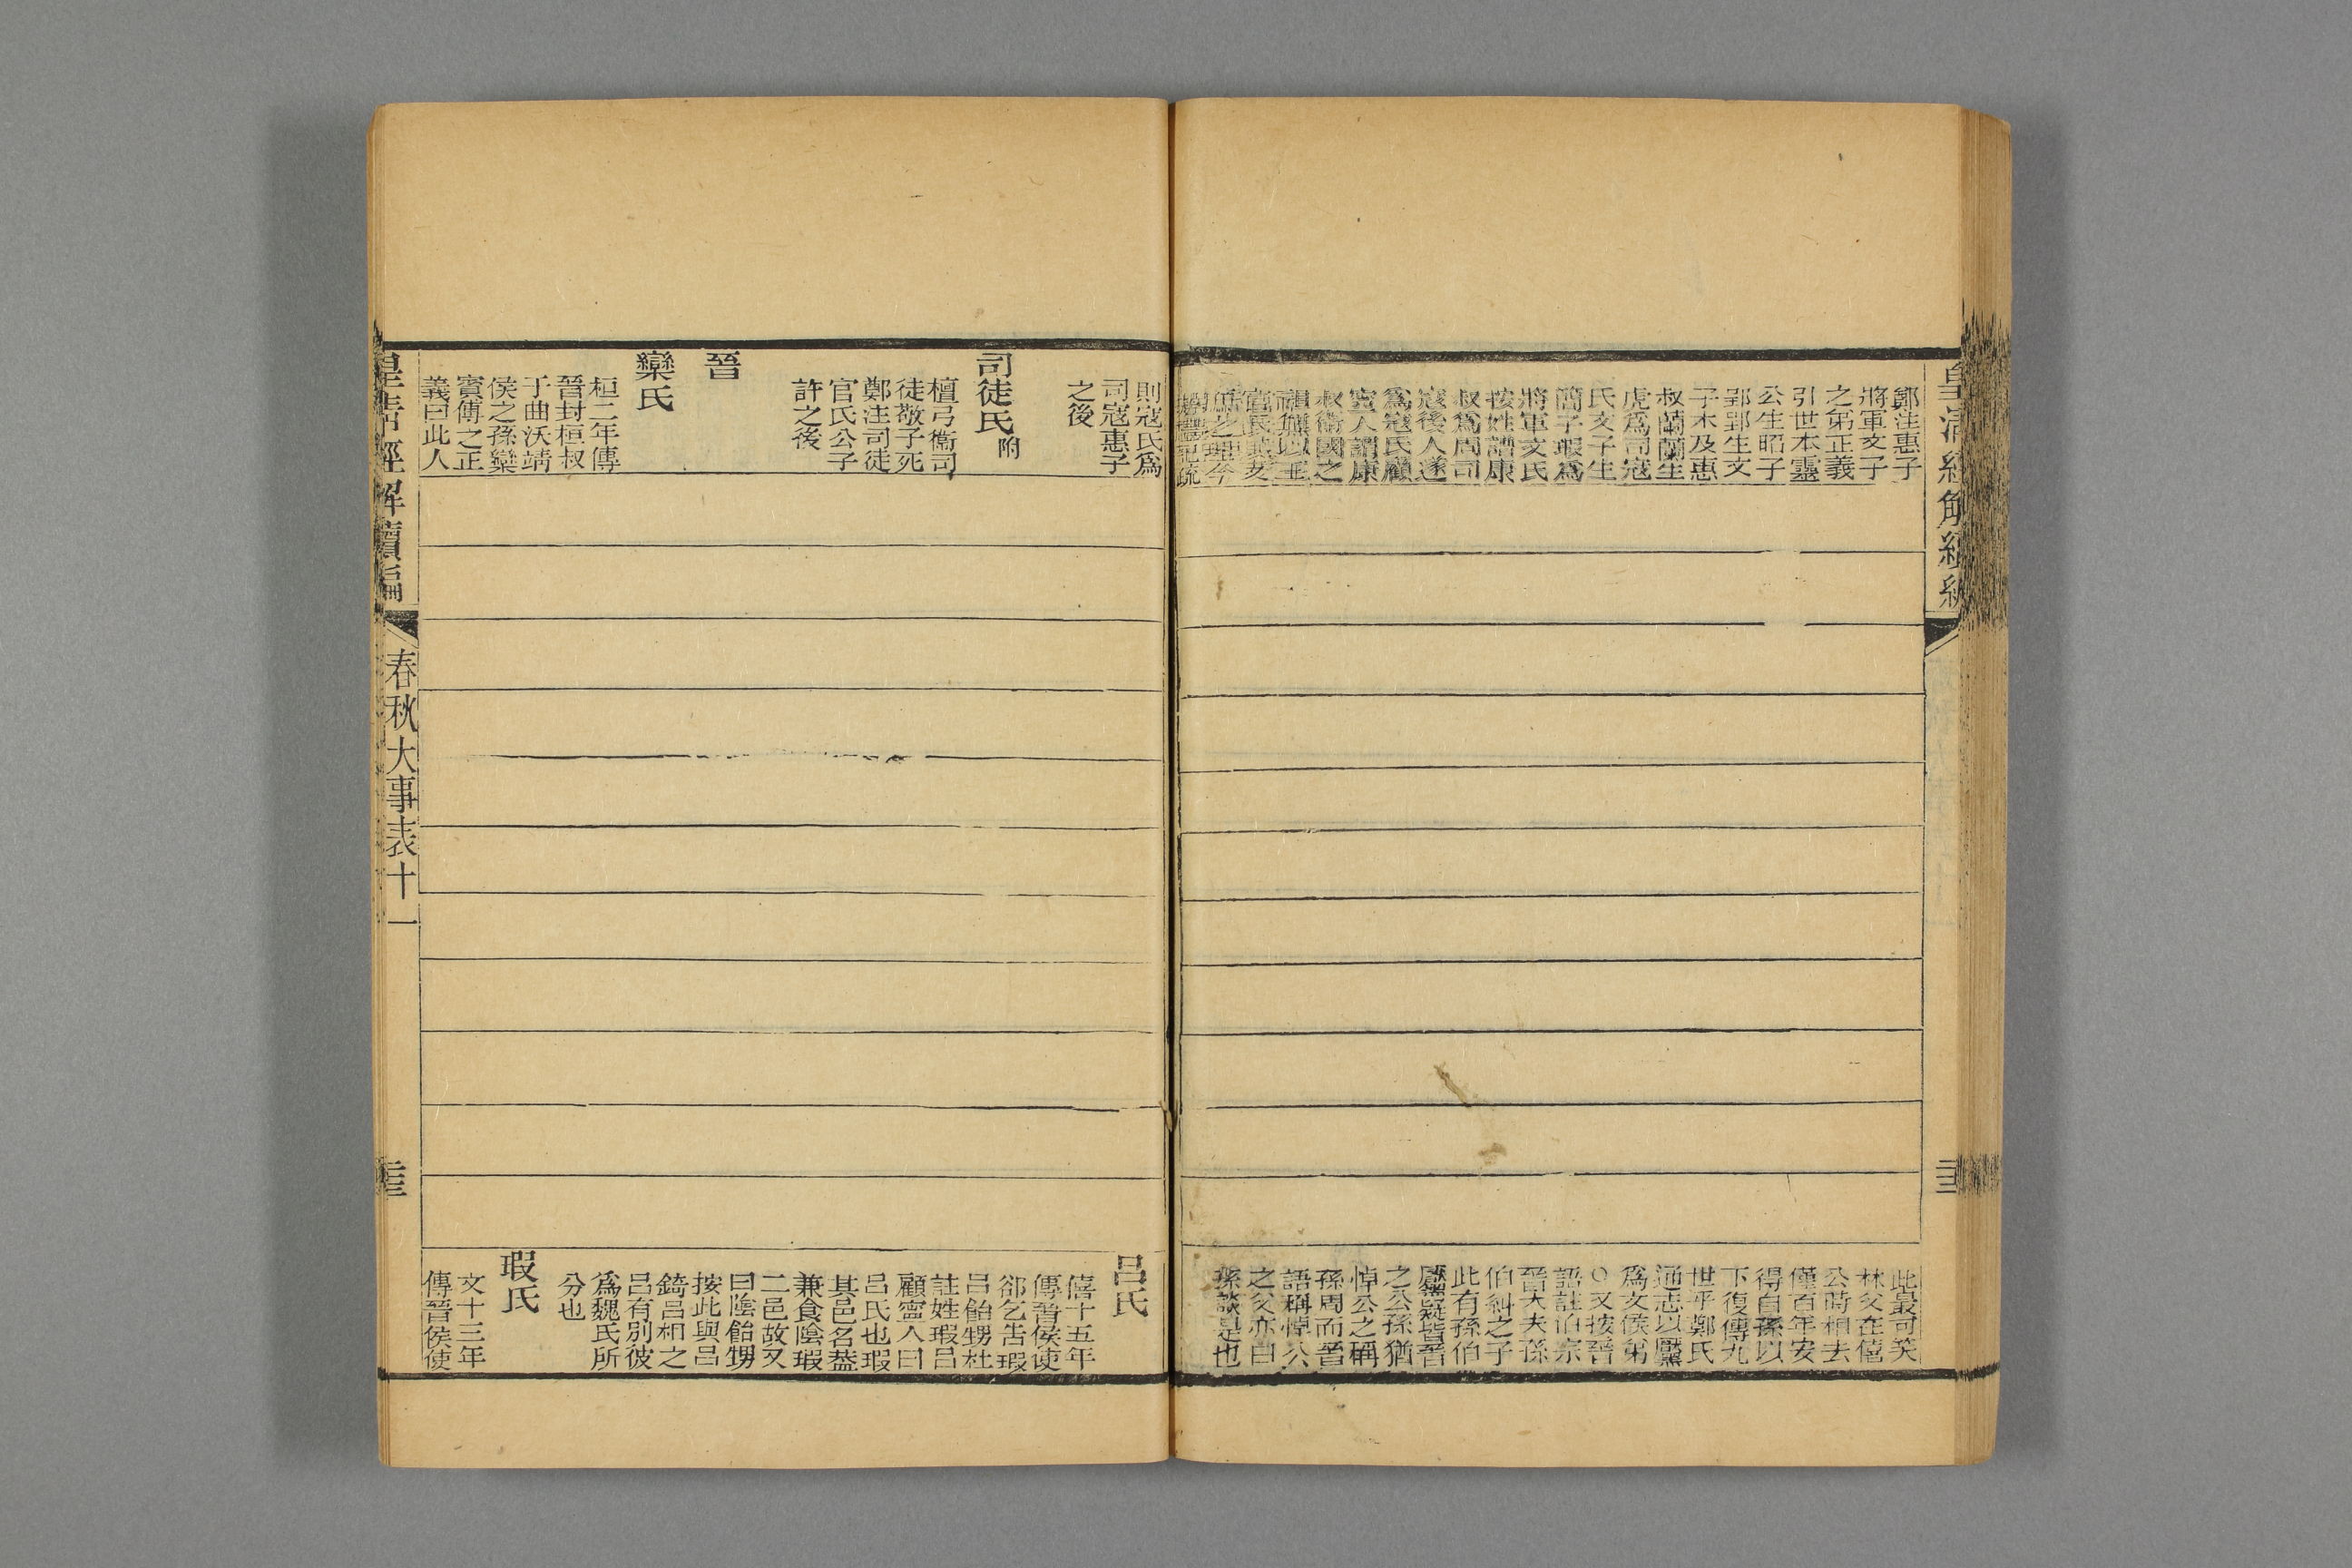 皇清經解續編
鄭注惠子
將軍文子
之弟正義
引世本靈
公生昭子
郢郢生文
子木及惠
叔蘭蘭生
虎爲司寇
氏文子生
簡子瑕爲
將軍文氏
按姓譜康
叔爲周司
寇後人遂
爲寇氏顧
寧人謂康
叔衛國之
祖無以王
官氏其支
庶之理今
此最可笑
林父在僖
公時相去
僅百年安
得自孫以
下復傳九
世乎鄭氏
通志以黶
爲文侯弟
○又按晉
語註伯宗
晉大夫孫
伯糾之子
此有孫伯
黶疑皆晉
之公孫猶
悼公之稱
孫周而晉
語稱悼公
之父亦曰
孫談是也
則寇氏爲
司寇惠子
之後
司徒氏附
檀弓衞司
徒敬子死
鄭注司徒
官氏公子
許之後
晉
欒氏
桓二年傳
晉封桓叔
于曲沃靖
侯之孫欒
賓傅之正
義曰此人
呂氏
僖十五年
傳晉侯使
郤乞告瑕
呂飴甥杜
註姓瑕呂
顧寧人曰
呂氏也瑕
其邑名葢
兼食陰瑕
二邑故又
曰陰飴甥
按此與呂
錡呂相之
呂有別彼
爲魏氏所
分也
瑕氏
文十三年
傳晉侯使
皇清經解續編
春秋大事表十一